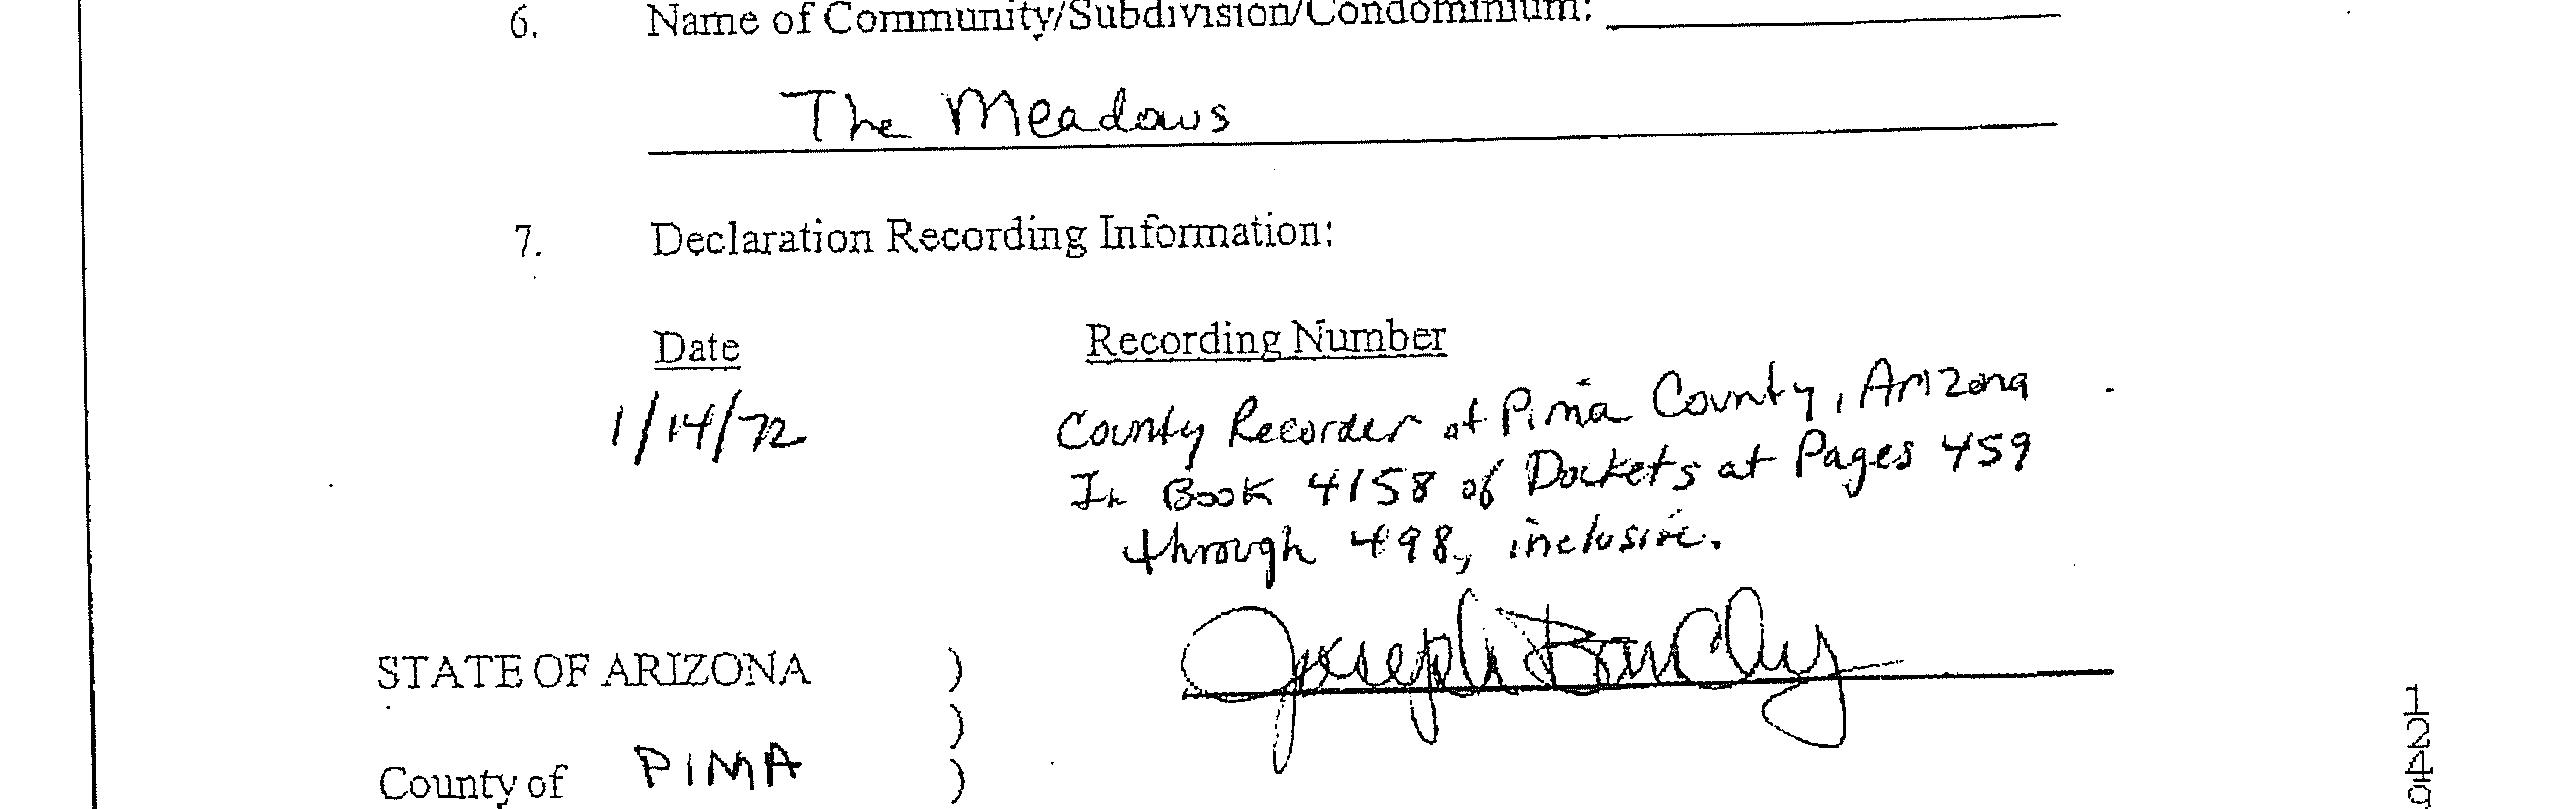 6. Name of Community/Subdivision/Condominium:
The Meadows
7. Declaration Recording Information:
Date Recording Number
1/14/72 County Recorder of Pima County, Arizona
In Book 4158 of Dockets at Pages 459
through 498, inclusive.
STATE OF ARIZONA )
Joseph
)
County of PIMA )
1249